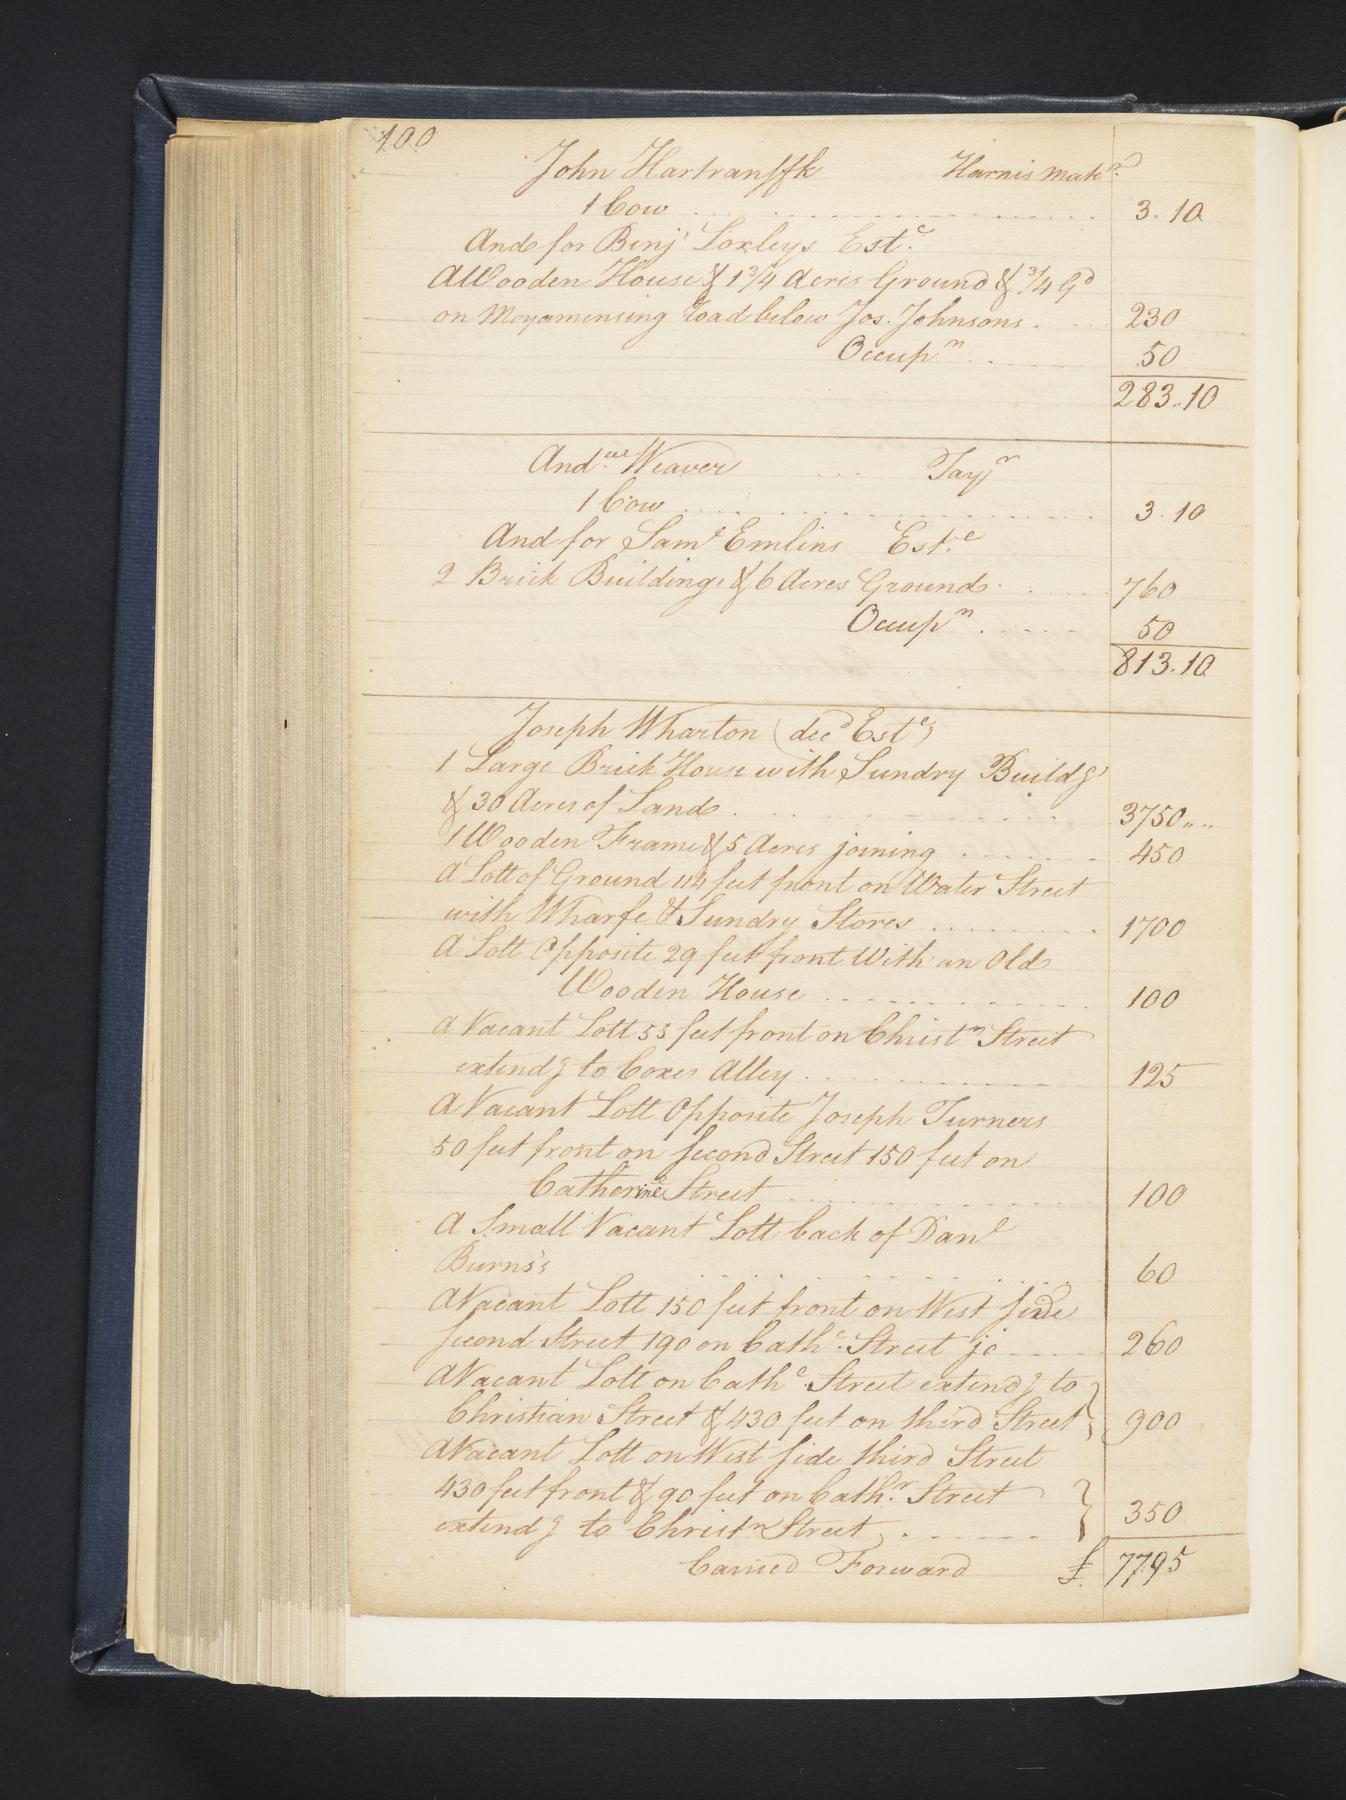 100
John Hartranffk Harnis Makr.
1 Cow 3.10
And for Benj Loxleys Este.
A Wooden House & 1 3/4 Acres Ground & 3/4 Gd
on Moyamensing Road below Jos. Johnsons. 230
Occupn 50
283.10
Andrew Weaver Taylr
1 Cow 3.10
And for Saml Emlins Este.
2 Brick Buildings & 6 Acres Ground 760
Occupn 50
813.10
Joseph Wharton (decd Este)
1 Large Brick House with Sundry Buildgs
& 30 Acres of Land 3750
1 Wooden Frame & 5 Acres joining 450
A Lott of Ground 114 feet front on Water Street
with Wharfe & Sundry Stores 1700
A Lott Opposite 29 feet front With an Old
Wooden House 100
A Vacant Lott 53 feet front on Christn Street
extendg to Coxes Alley 125
A Vacant Lott Opposite Joseph Turners
50 feet front on Second Street 150 feet on
Catherine Street 100
A Small Vacant Lott back of Danl
Burns's 60
A Vacant Lott 150 feet front on West Side
Second Street 190 on Cathe. Street 260
A Vacant Lott on Cathe. Street extendg to
Christian Street & 430 feet on third Street 900
A Vacant Lott on West Side third Street
430 feet front & 90 feet on Cathr. Street
extendg to Christn Street 350
Carried Forward £ 7795